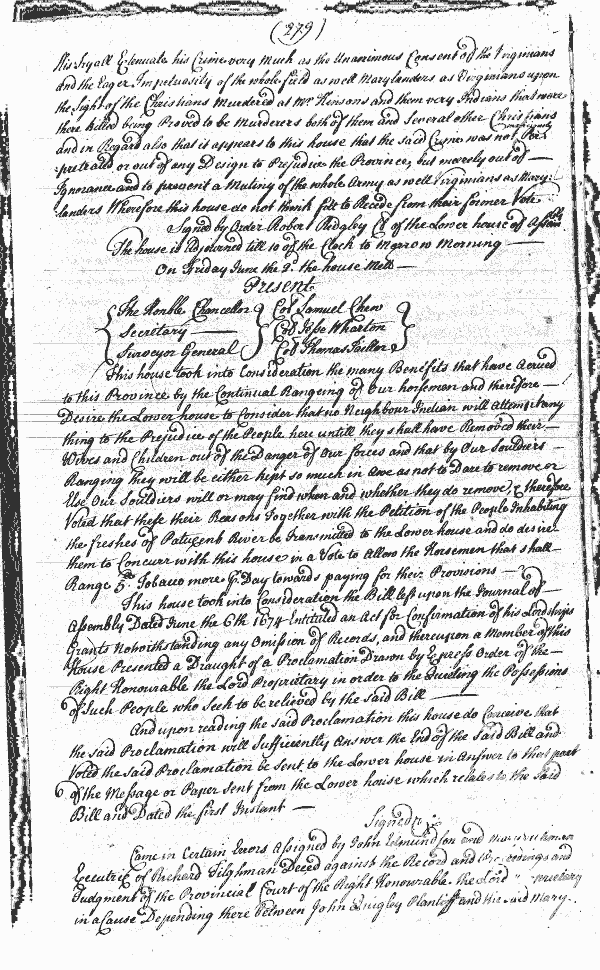 (279)
his Tryall Extenuate his Crime very Much as the Unanimous Consent of the Virginians
and the Eager Impetuosity of the whole field as well Marylanders as Virginians upon
the Sight of the Christians Murdered at Mr Hensons and them very Indians that were
there killed being Proved to be Murderers both of them and Several other Christians
and in Regard also that it appears to this house that the said Crime was not Per
petrated or out of any Design to Prejudice the Province, but merely out of
Ignorance and to prevent a Mutiny of the whole Army as well Virginians as Mary:
landers Wherefore this house do not think fitt to Recede from their former Vote
Signed by Order Robert Ridgly Cl of the Lower house of Assem
The house is Adjourned till 10 of the Clock to Morrow Morning
On Friday June the 2d the house Mett
Present
The Honble Chancellor Col Samuel Chew
Secretary Col Jesse Wharton
Surveyor General Col Thomas Taillor
This house took into Consideration the many Benefits that have Acrued
to this Province by the Continual Rangeing of Our horsemen and therefore
Desire the Lower house to Consider that no Neighbour Indian will Attempt any
thing to the Prejudice of the People here untill they shall have Removed their
Wives and Children out of the Danger of Our forces and that by Our Souldiers
Ranging they will be either kept so much in Awe as not to Dare to remove or
Else Our Souldiers will or may find when and whether they do remove, & therefore
Voted that these their Reasons Together with the Petition of the People Inhabiting
the freshes of Patuxent River be Transmitted to the Lower house and do desire
them to Concurr with this house in a Vote to Allow the Horsemen that shall
Range 5 Tobacco more Day towards paying for their Provisions
This house took into Consideration the Bill left upon the Journal of
Assembly Dated June the 6th 1674 Entituled an Act for Confirmation of his Lordships
Grants Notwithstanding any Omission of Records, and thereupon a Member of this
House Presented a Draught of a Proclamation Drawn by Express Order of the
Right Honourable the Lord Proprietary in order to the Quieting the Possessions
of Such People who Seek to be relieved by the said Bill
And upon reading the said Proclamation this house do Conceive that
the said Proclamation will Sufficiently Answer the End of the Said Bill and
Voted the said Proclamation be Sent to the Lower house in Answer to that part
of the Message or Paper sent from the Lower house which relates to the Said
Bill and Dated the first Instant
Signed
Came in Certain Errors Assigned by John Edmundson and
Executrix of Richard Tilghman Deced against the Record and Proceedings and
Judgment of the Provincial Court of the Right Honourable the Lord Proprietary
in a Cause Depending there between John Quigley Plantiff and the said Mary